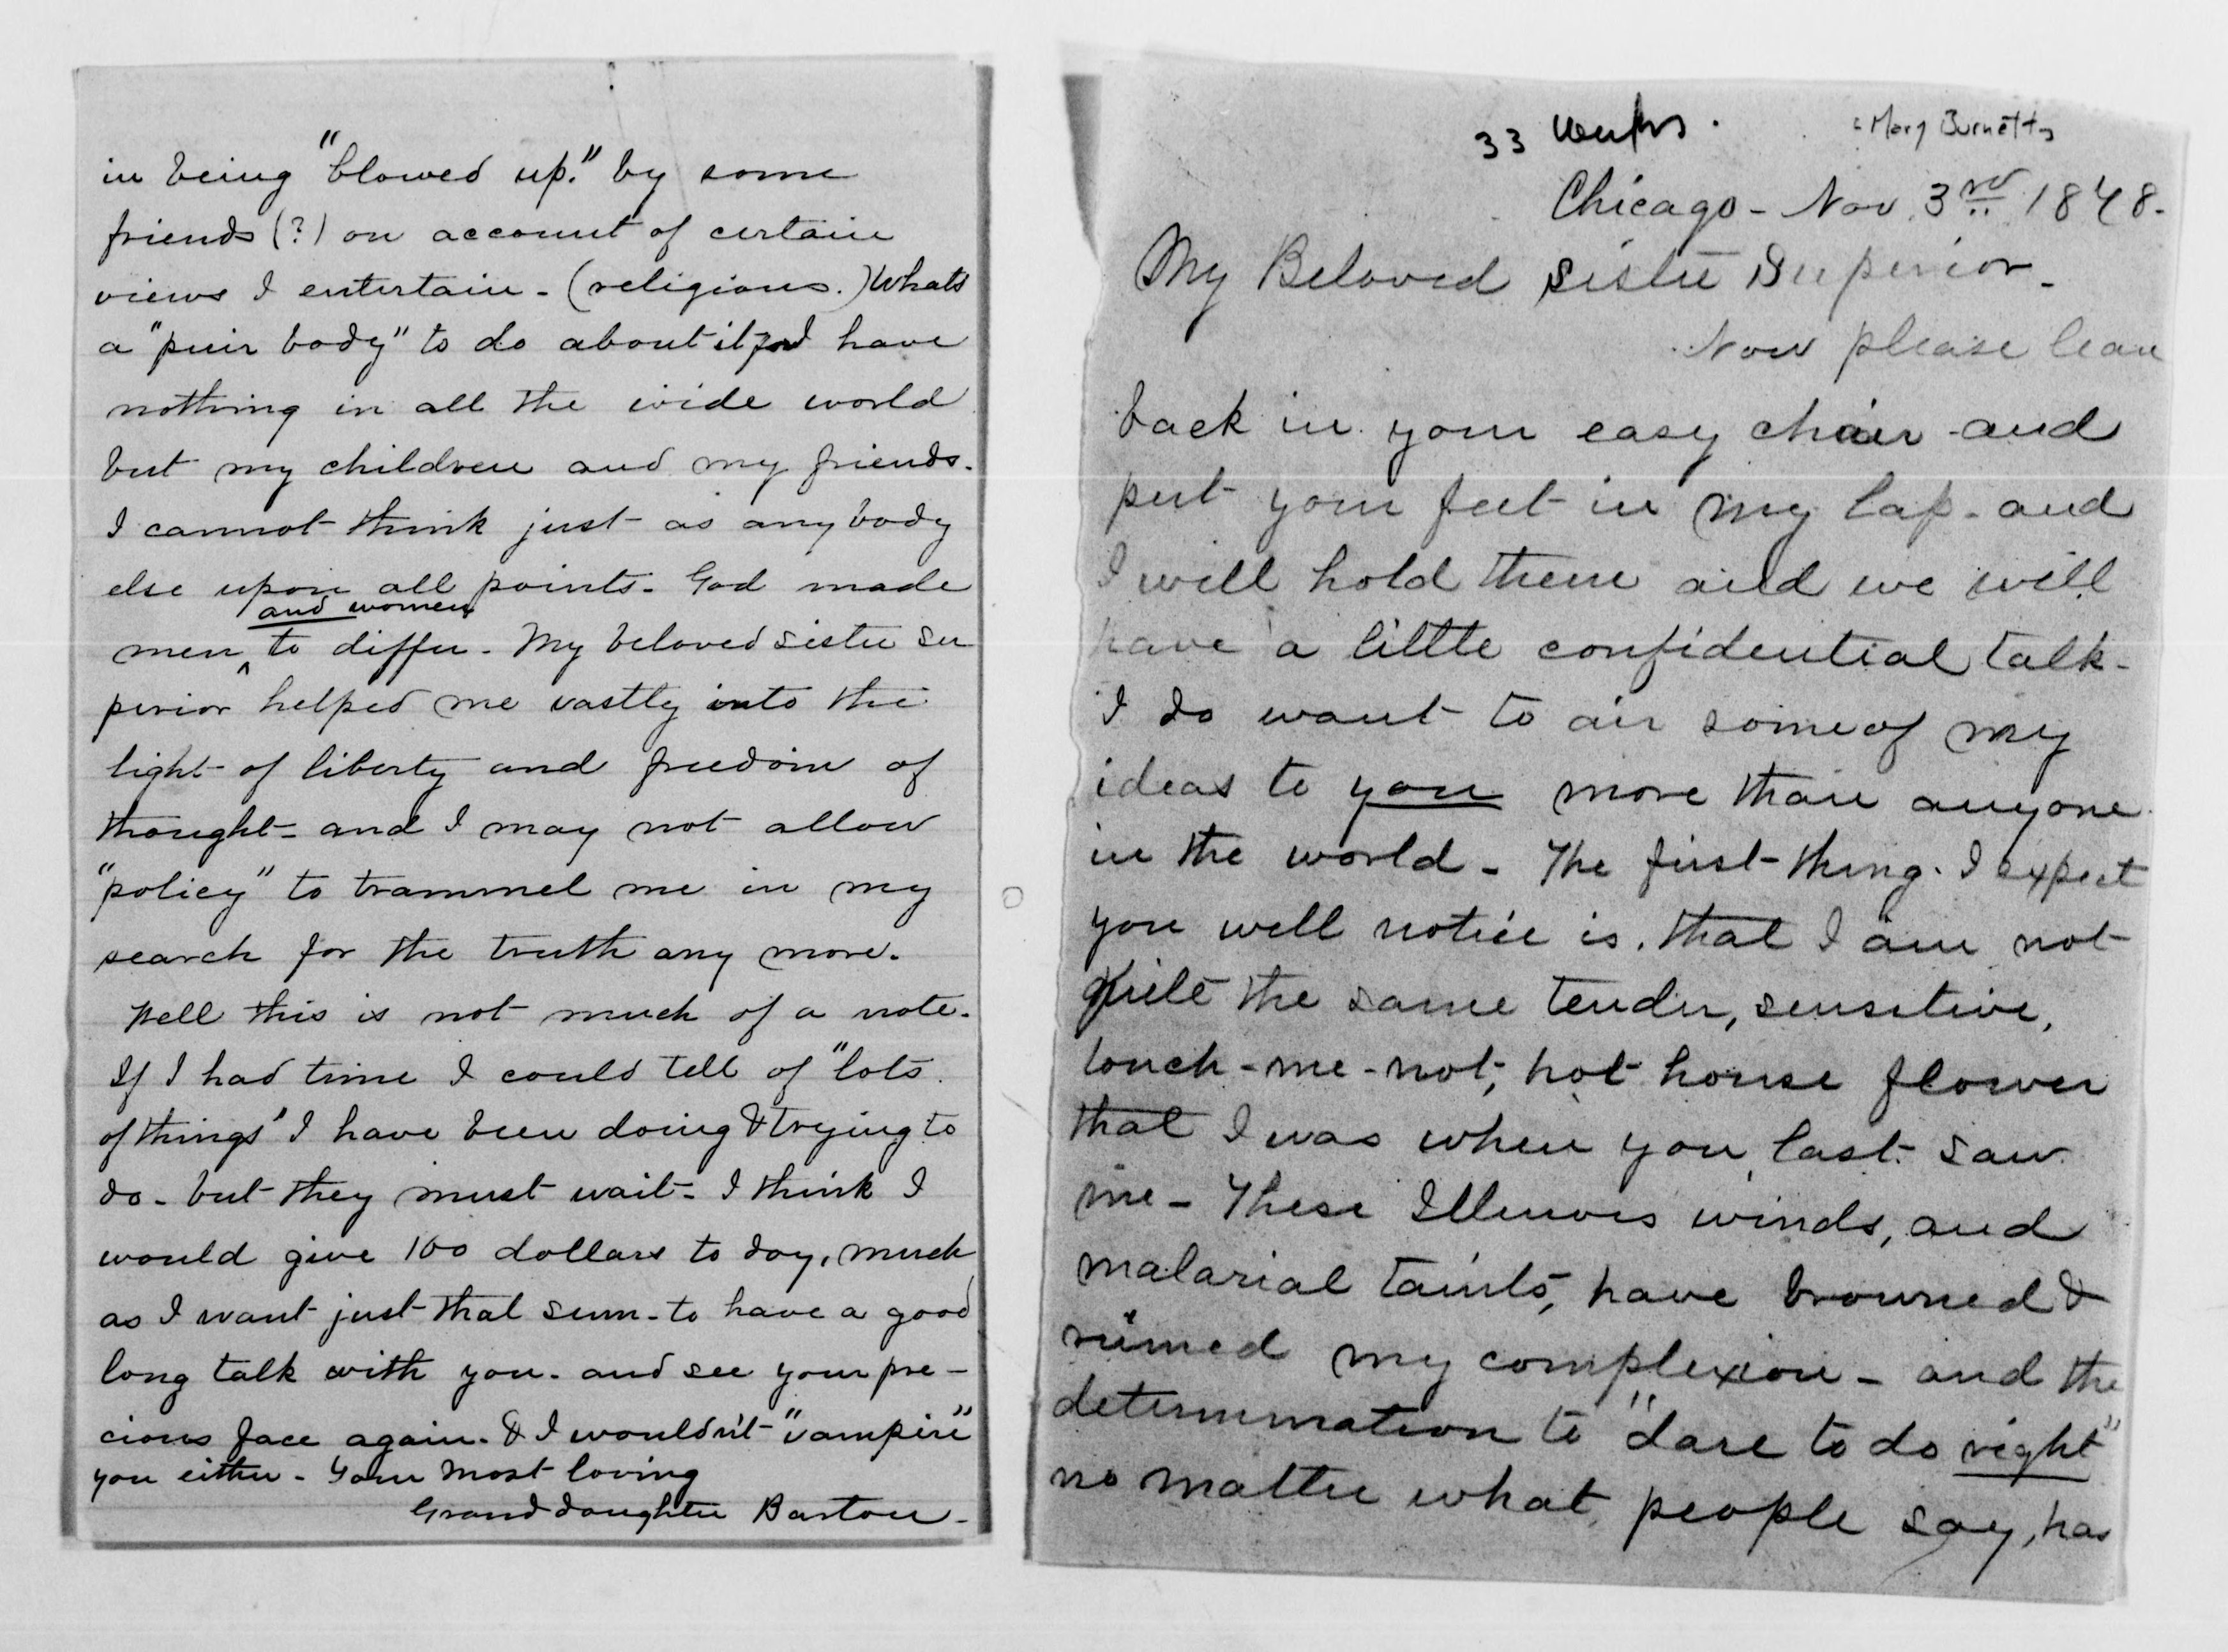 in being "blowed up." by some
friends (?) on account of certain
views I entertain - (religious.) Whats
a "puir body" to do about it, for I have
nothing in all the wide world
but my children and my friends.
I cannot think just as any body
else upon all points. God made
and women
men ^ to differ. My beloved sister su
perior helped me vastly into the
light of liberty and freedom of
thought - and I may not allow
"policy" to trammel me in my
search for the truth any more.
Well this is not much of a note.
If I had time I could tell of "lots
of things" I have been doing & trying to
do - but they must wait - I think I
would give 100 dollars to day, much
as I want just that sum - to have a good
long talk with you. and see your pre-
cious face again. & I wouldn't "vampire"
you either - Your most loving
Grand daughter Barton -
33
Mary Burnett
Chicago - Nov. 3rd 1878.
My Beloved Sister Superior -
Now please lean
back in your easy chair and
put your feet in my lap - and
I will hold them and we will
have a little confidential talk -
I do want to air some of my
ideas to you more than anyone
in the world - The first thing I expect
you will notice is, that I am not
quite the same tender, sensitive,
touch-me-not, hot house flower
that I was when you last saw
me - These Illinois winds, and
malarial taints, have browned &
ruined my complexion - and the
determination to "dare to do right"
no matter what people say, has